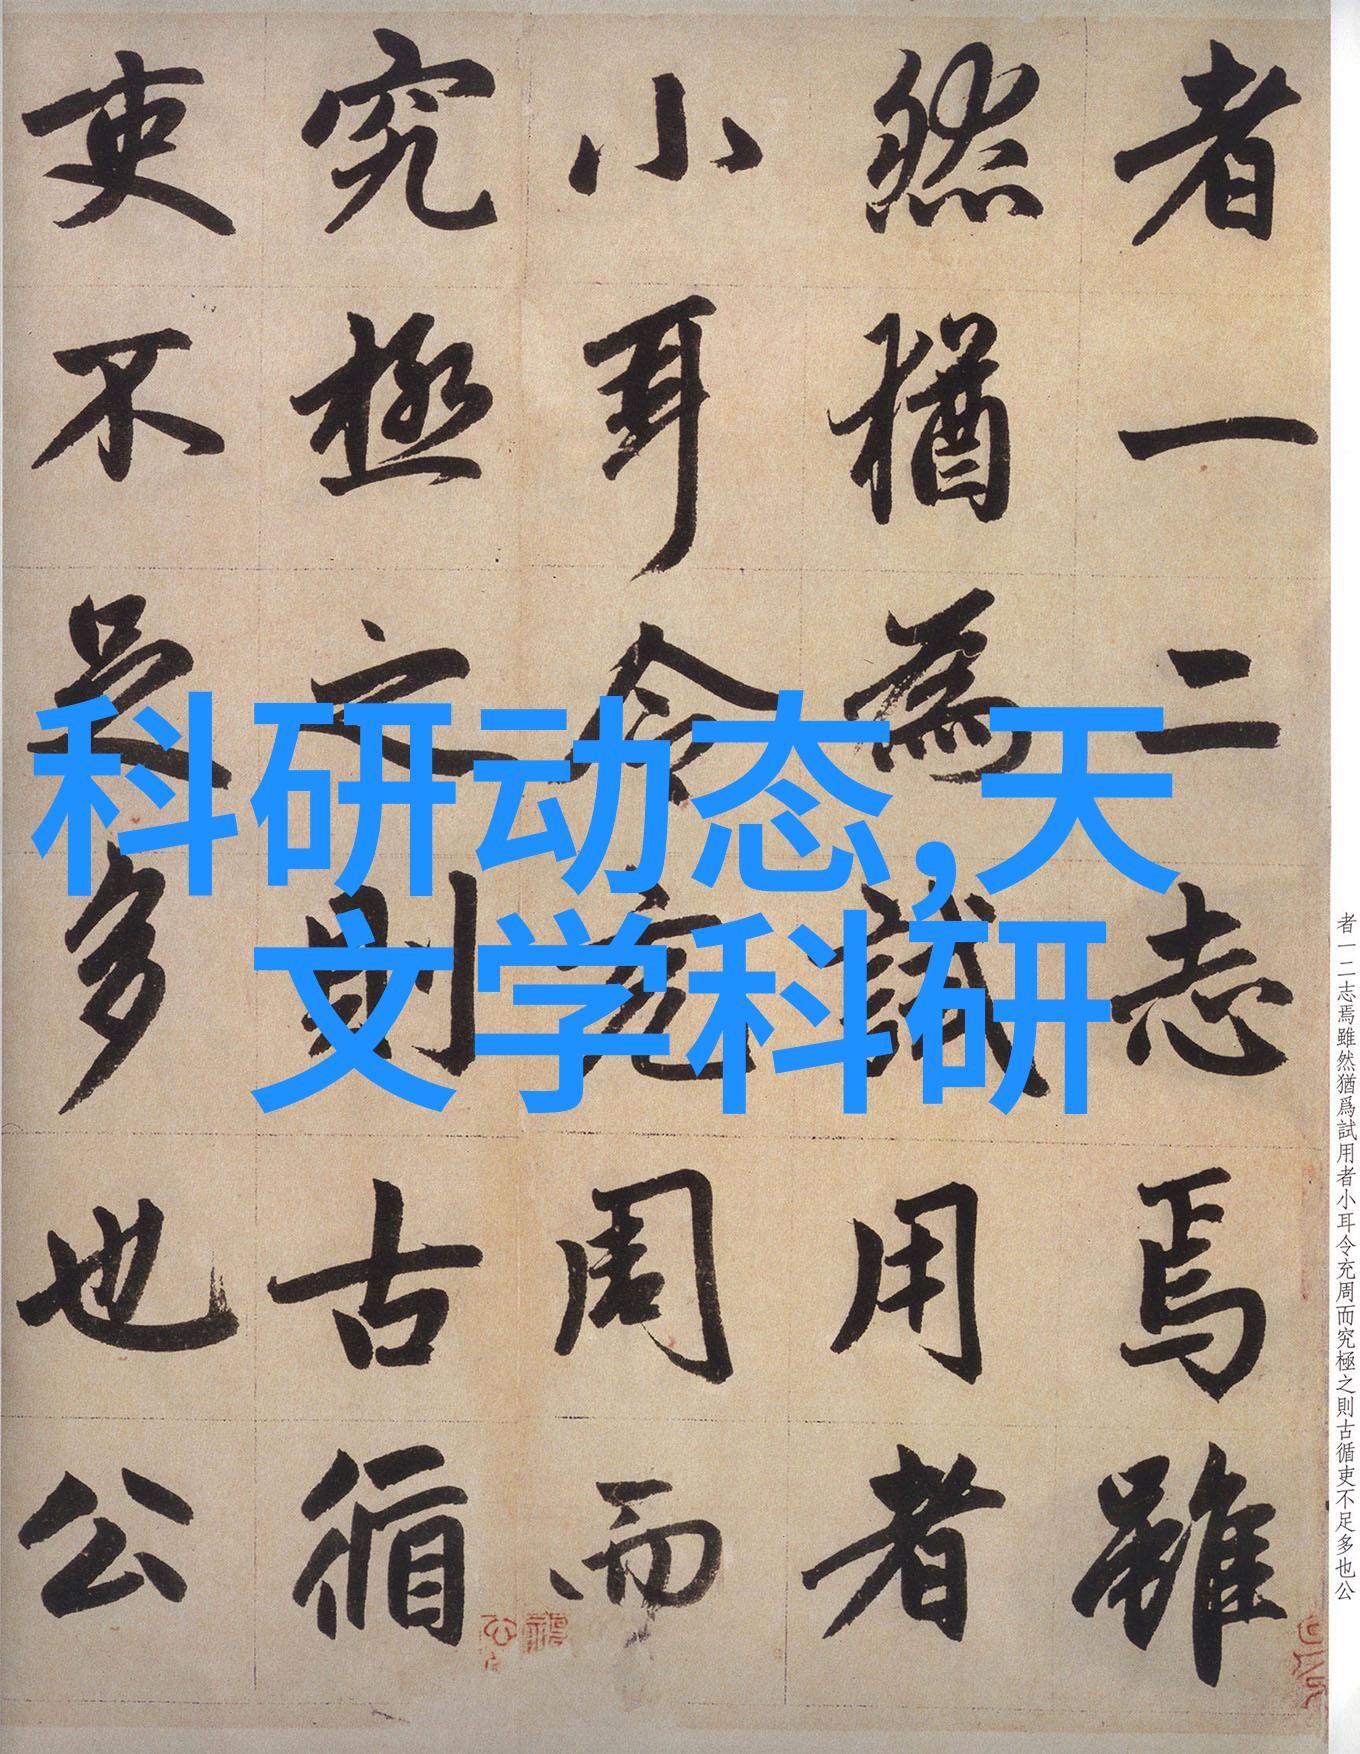 科研动态,天
文学科研
者一二志焉雖
然猶為試用者
小耳令充周而
究極之則古循
吏不足多也公
者一二志焉雖然猶爲試用者小耳令充周而究極之則古循吏不足多也公